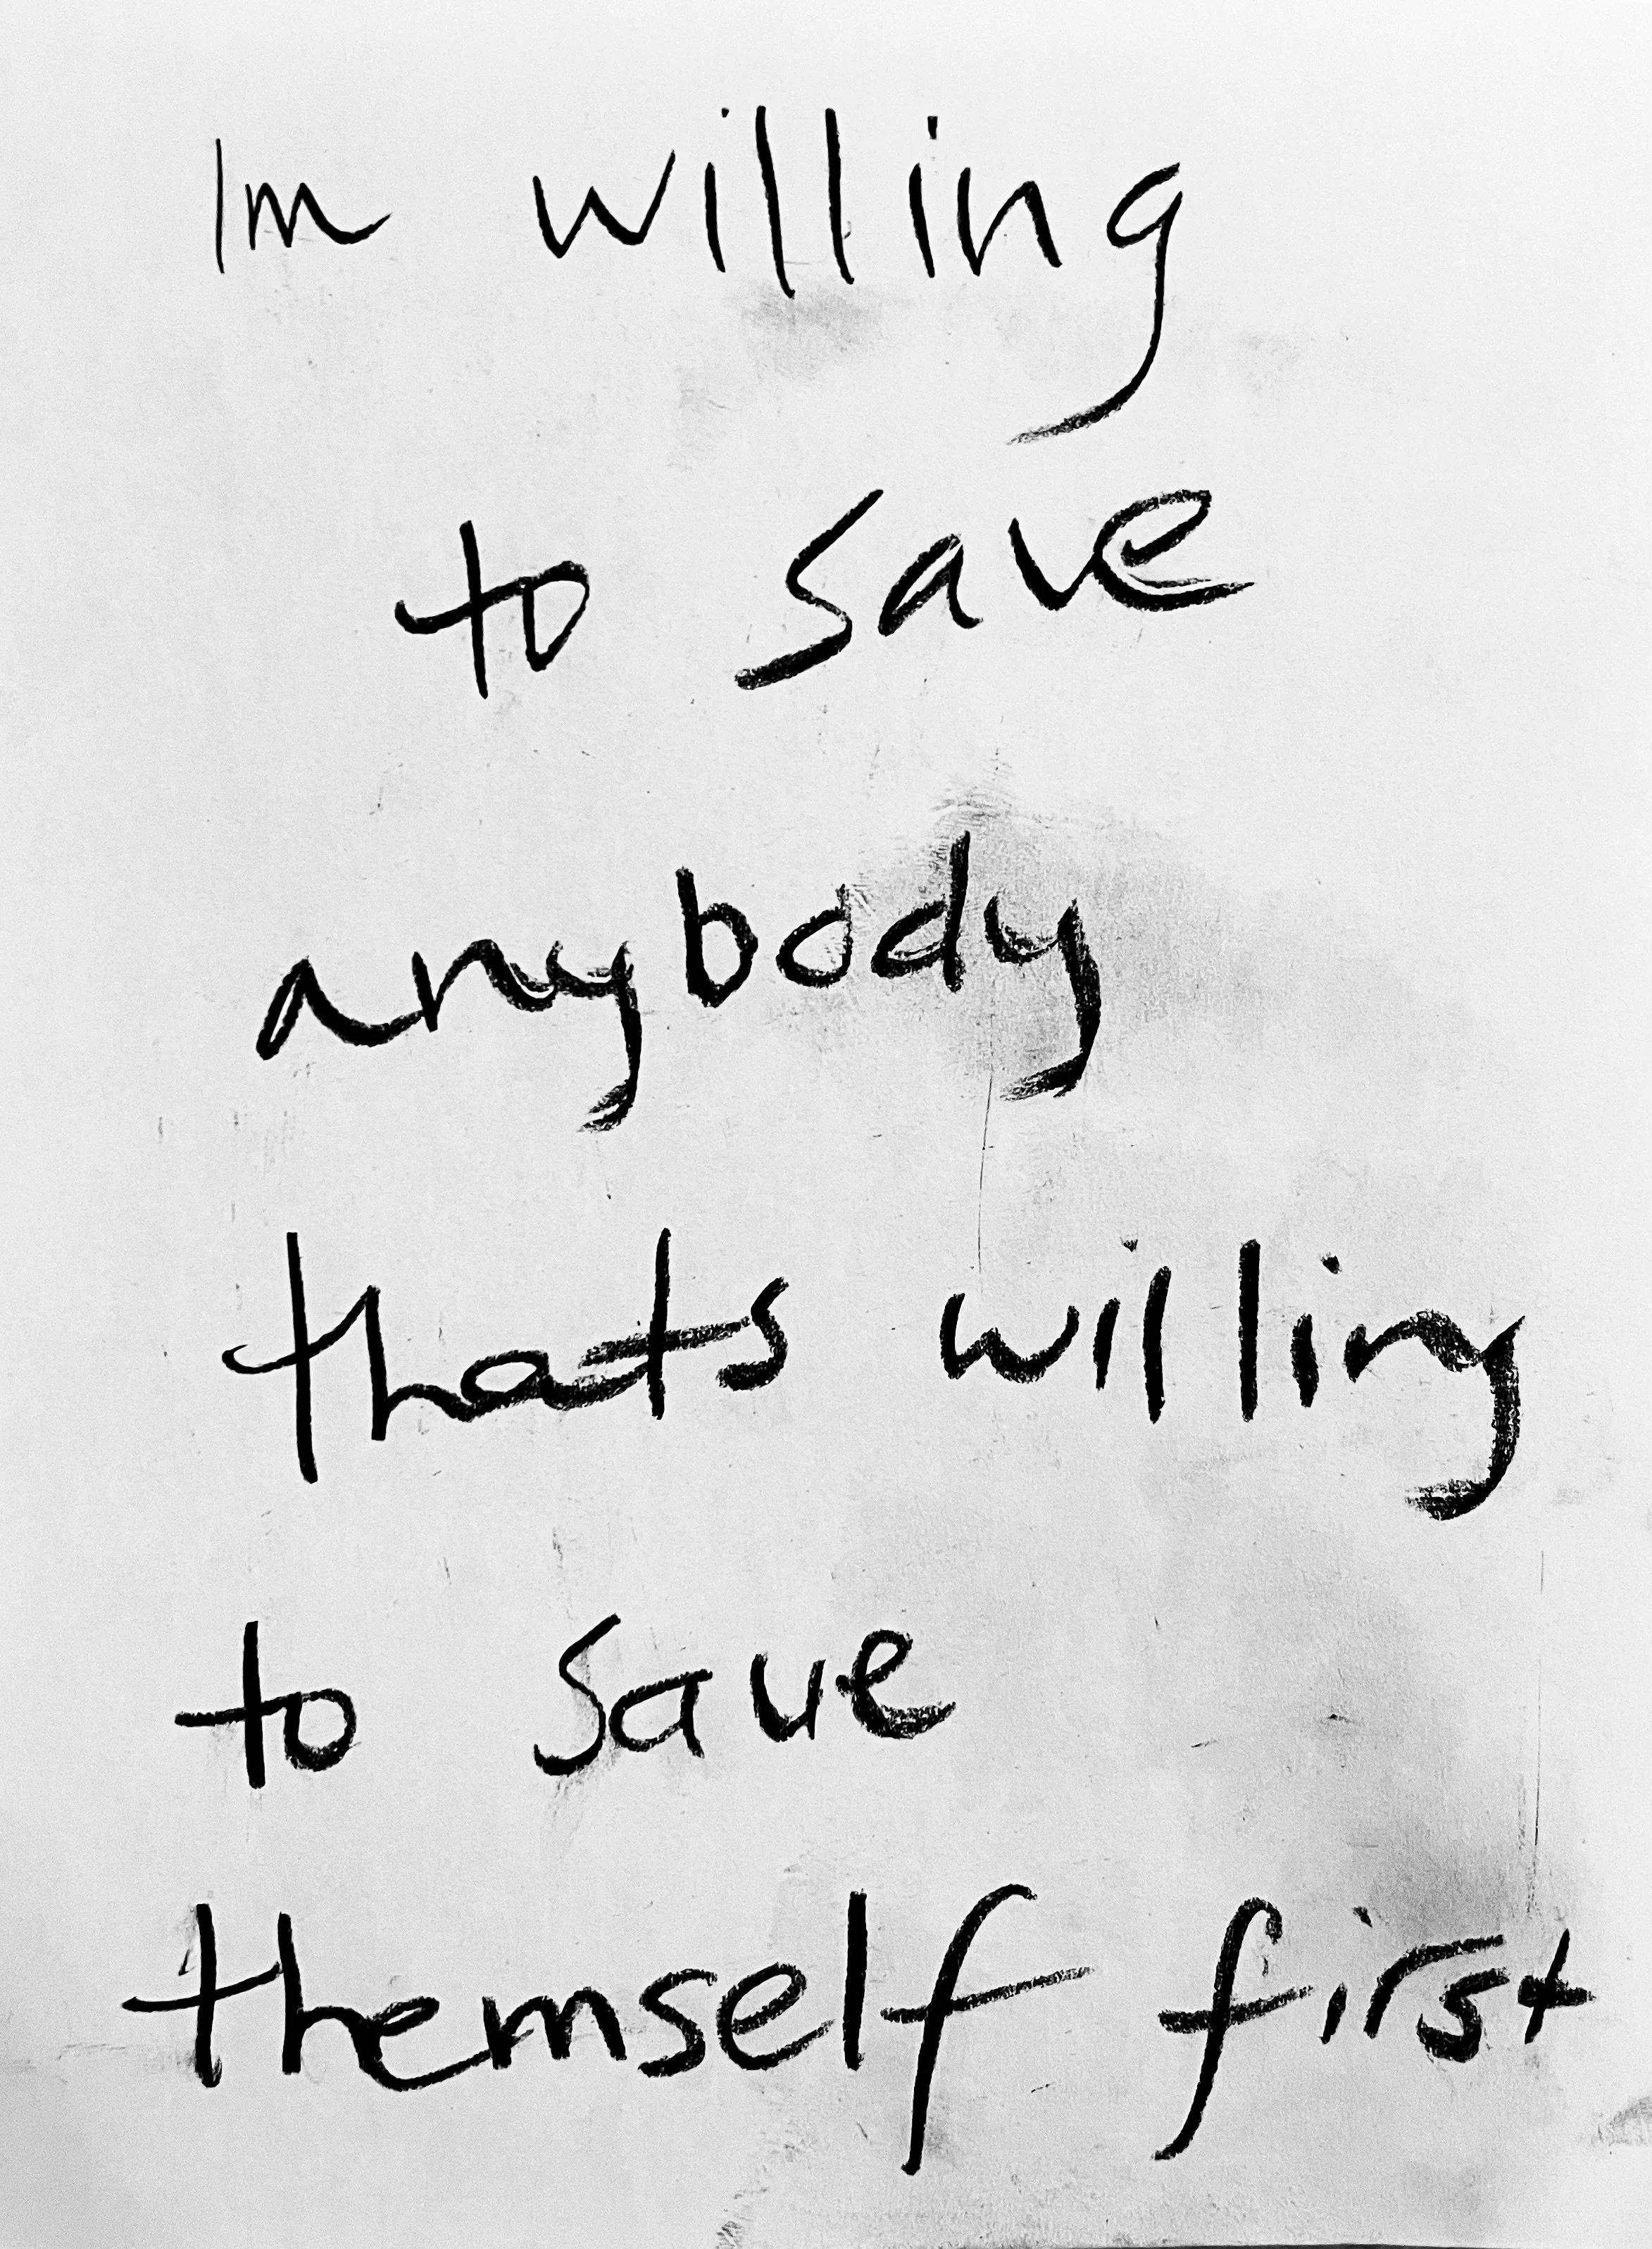 Im willing
to save
anybody
thats willing
to save
themself first